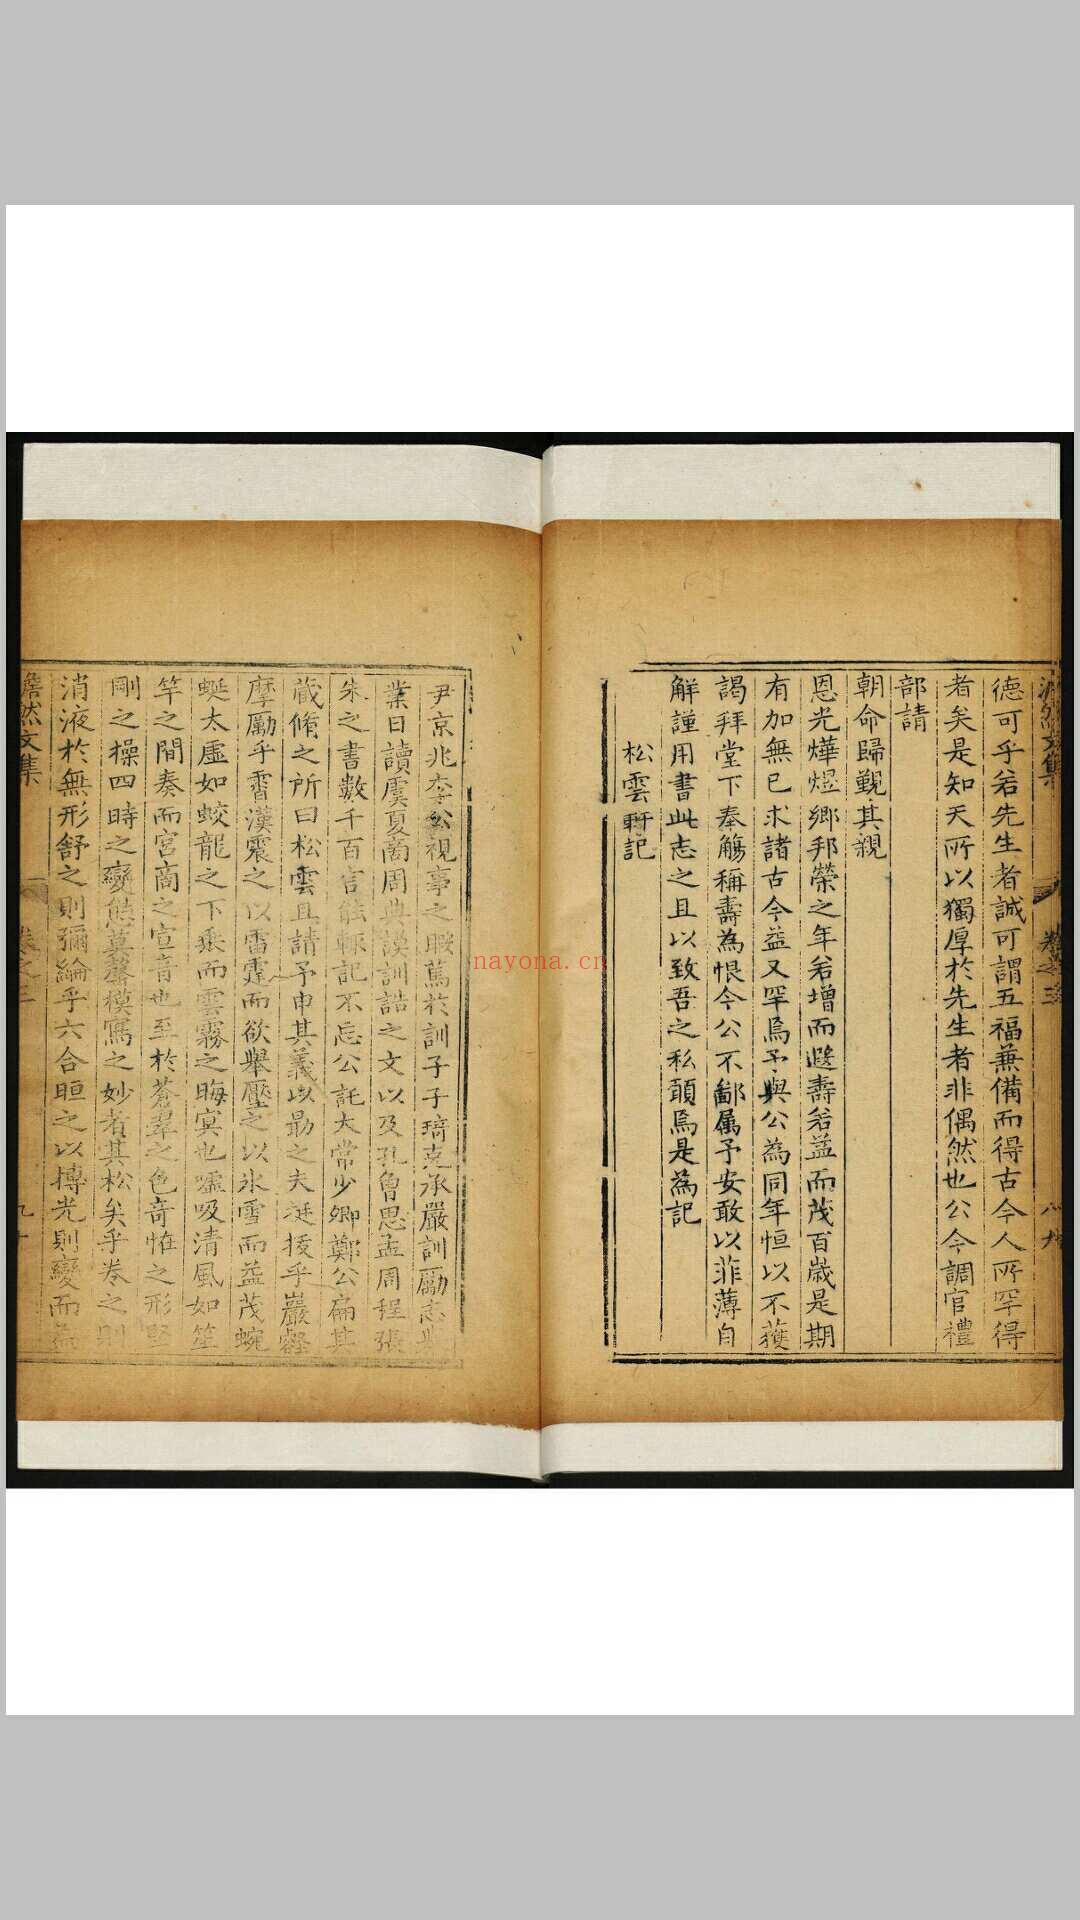 德可乎若先生者誠可謂五福兼備而得古今人所罕得
者矣是知天所以獨厚於先生者非偶然也公今調官禮
部請
朝命歸覲其親
恩光燁煜鄉邦榮之年若增而遐壽若益而茂百歲是期
有加無已求諸古今益又罕焉予與公為同年恒以不獲
謁拜堂下奉觴稱壽為恨今公不鄙属予安敢以菲薄自
解謹用書此志之且以致吾之私願焉是為記
松雲軒記
尹京兆李公視事之暇篤於訓子子琦克承嚴訓勵志
業日讀虞夏商周典謨訓誥之文以及孔曾思孟周程張
朱之書數千百言能輒記不忘公託太常少卿鄭公扁其
藏脩之所曰松雲且請予申其義以勗之夫挺拔乎巖壑
摩勵乎霄漢震之以雷霆而欲舉壓之以氷雪而益茂蜿
蜒太虛如蛟龍之下垂而雲霧之晦冥也噓吸清風如笙
竽之間奏而宮商之宣音也至於蒼翠之色竒怪之形堅
剛之操四時之變態莫罄模寫之妙者其松矣乎卷之則
消液於無形舒之則彌綸乎六合晅之以摶光則變而益
澹然文集
卷之三
nayona.cn